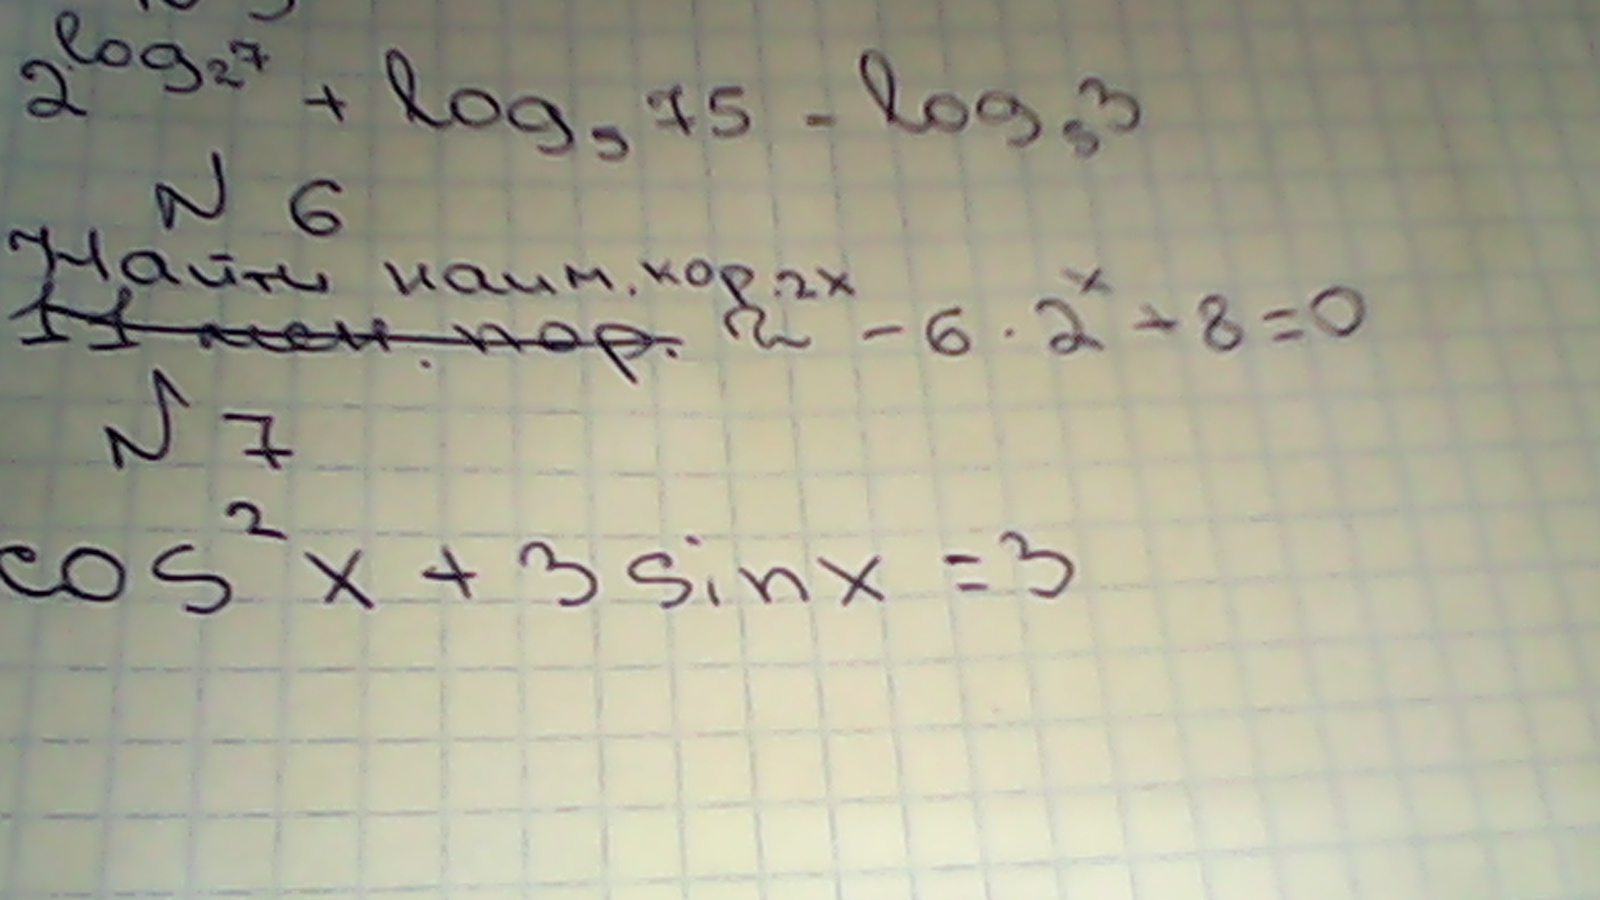 2^log₂7 + log₅ 75 - log₅3
N 6
Найти наим. кор. 2^2x - 6 · 2^x + 8 = 0
N 7
cos² x + 3 sin x = 3